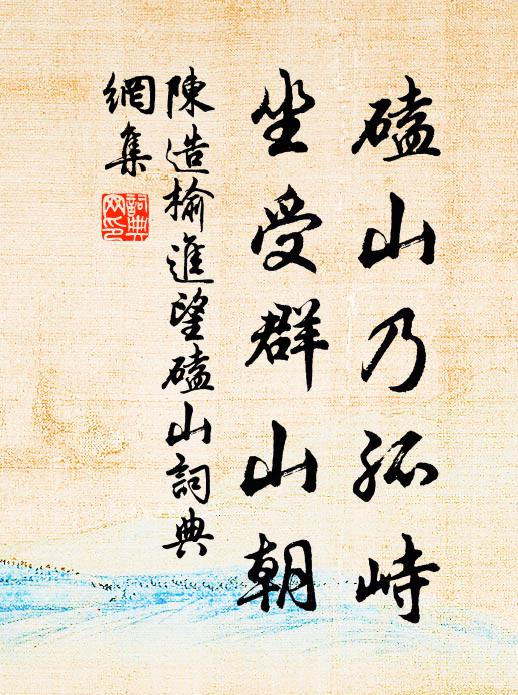 磕山乃孤峙
坐受群山朝
陳造榆進望磕山詞典
網集
詞典網印